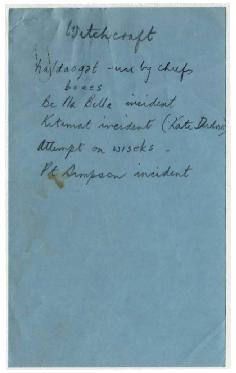 Witchcraft
ha/daogat - use by chiefs
boxes
Be Ma Bella incident
Kitimat incident (Kate
Attempt on wiseks -
Pt Simpson incident